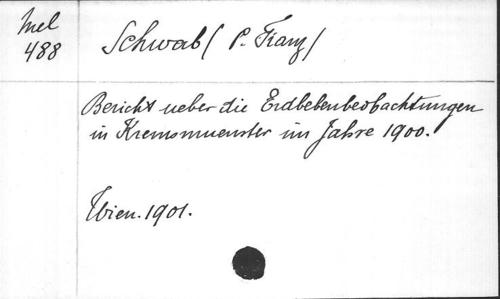 Mel
488
Schwab (P. Franz)
Bericht ueber die Erdbebenbeobachtungen
in Kremsmuenster im Jahre 1900.
Wien. 1901.